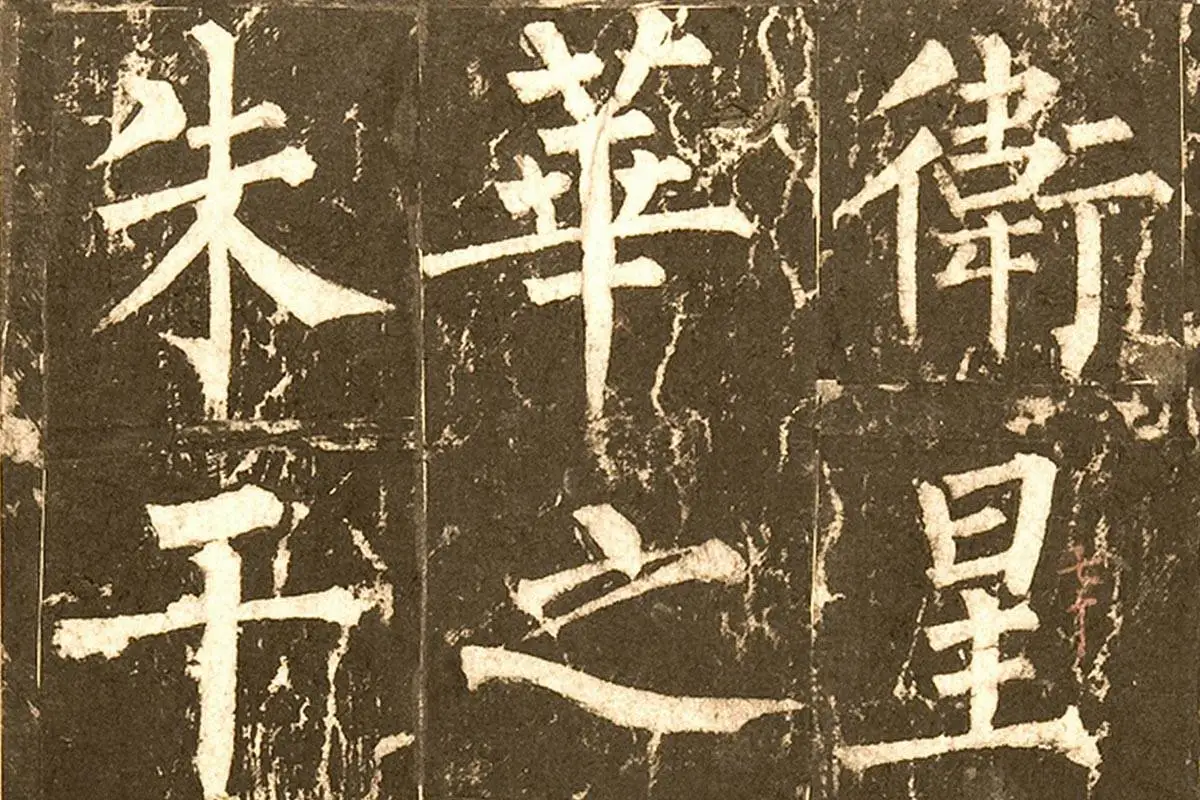 衛星
華之
朱干